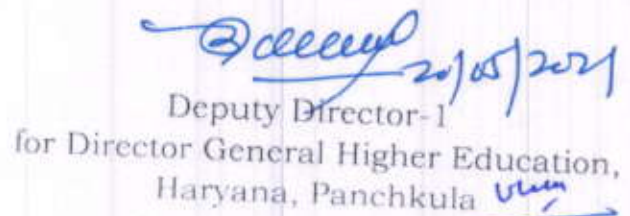 20/05/2021
Deputy Director-1
for Director General Higher Education,
Haryana, Panchkula